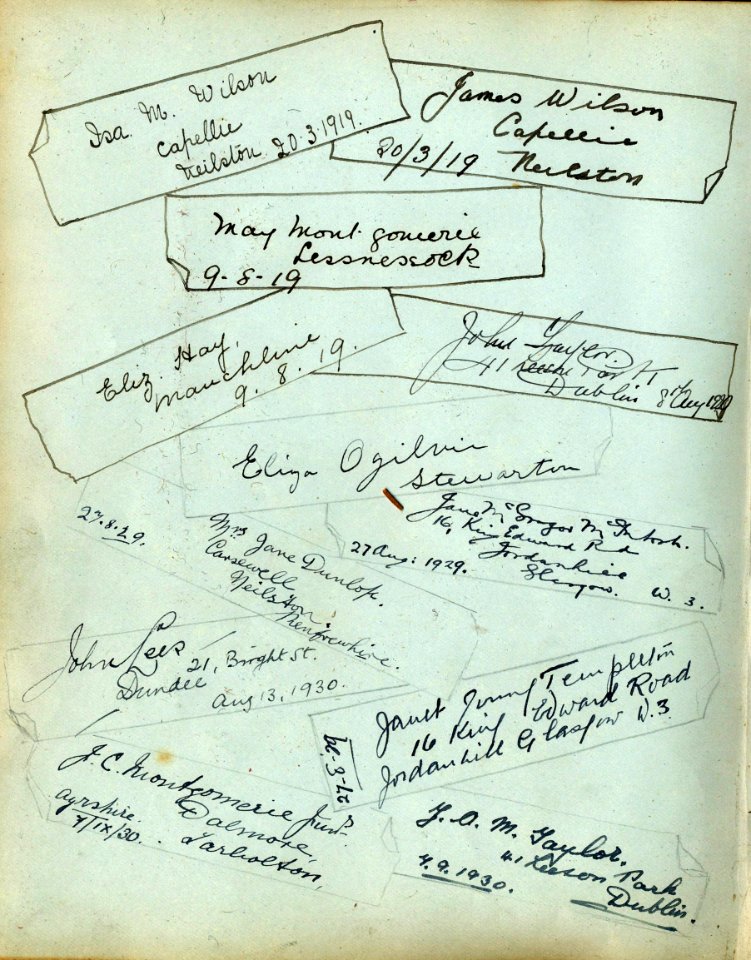 Isa M. Wilson
Capellie
Neilston 20.3.1919.
James Wilson
Capellie
20/3/19 Neilston
May Montgomerie
Lessnessock
9-8-19
Eliz. Hay,
Mauchline
9.8.19.
John Taylor.
41
Dublin 8th Aug 1920
Eliza Ogilvie
Stewarton
27.8.29.
Mrs Jane Dunlop.
Carsewell
Neilston.
Renfrewshire.
Jane McGregor McIntosh.
16, King Edward Rd
Jordanhill
27 Aug: 1929. Glasgow. W. 3.
John Lees
21, Bright St.
Dundee
Aug 13, 1930.
Janet Young Templeton
16 King Edward Road
Jordanhill Glasgow W.3.
27-8-30
J. C. Montgomerie Junr.
Dalmore,
Ayrshire. Tarbolton,
7/IX/30.
J. O. M. Taylor.
41 Leeson Park
7.9.1930. Dublin.